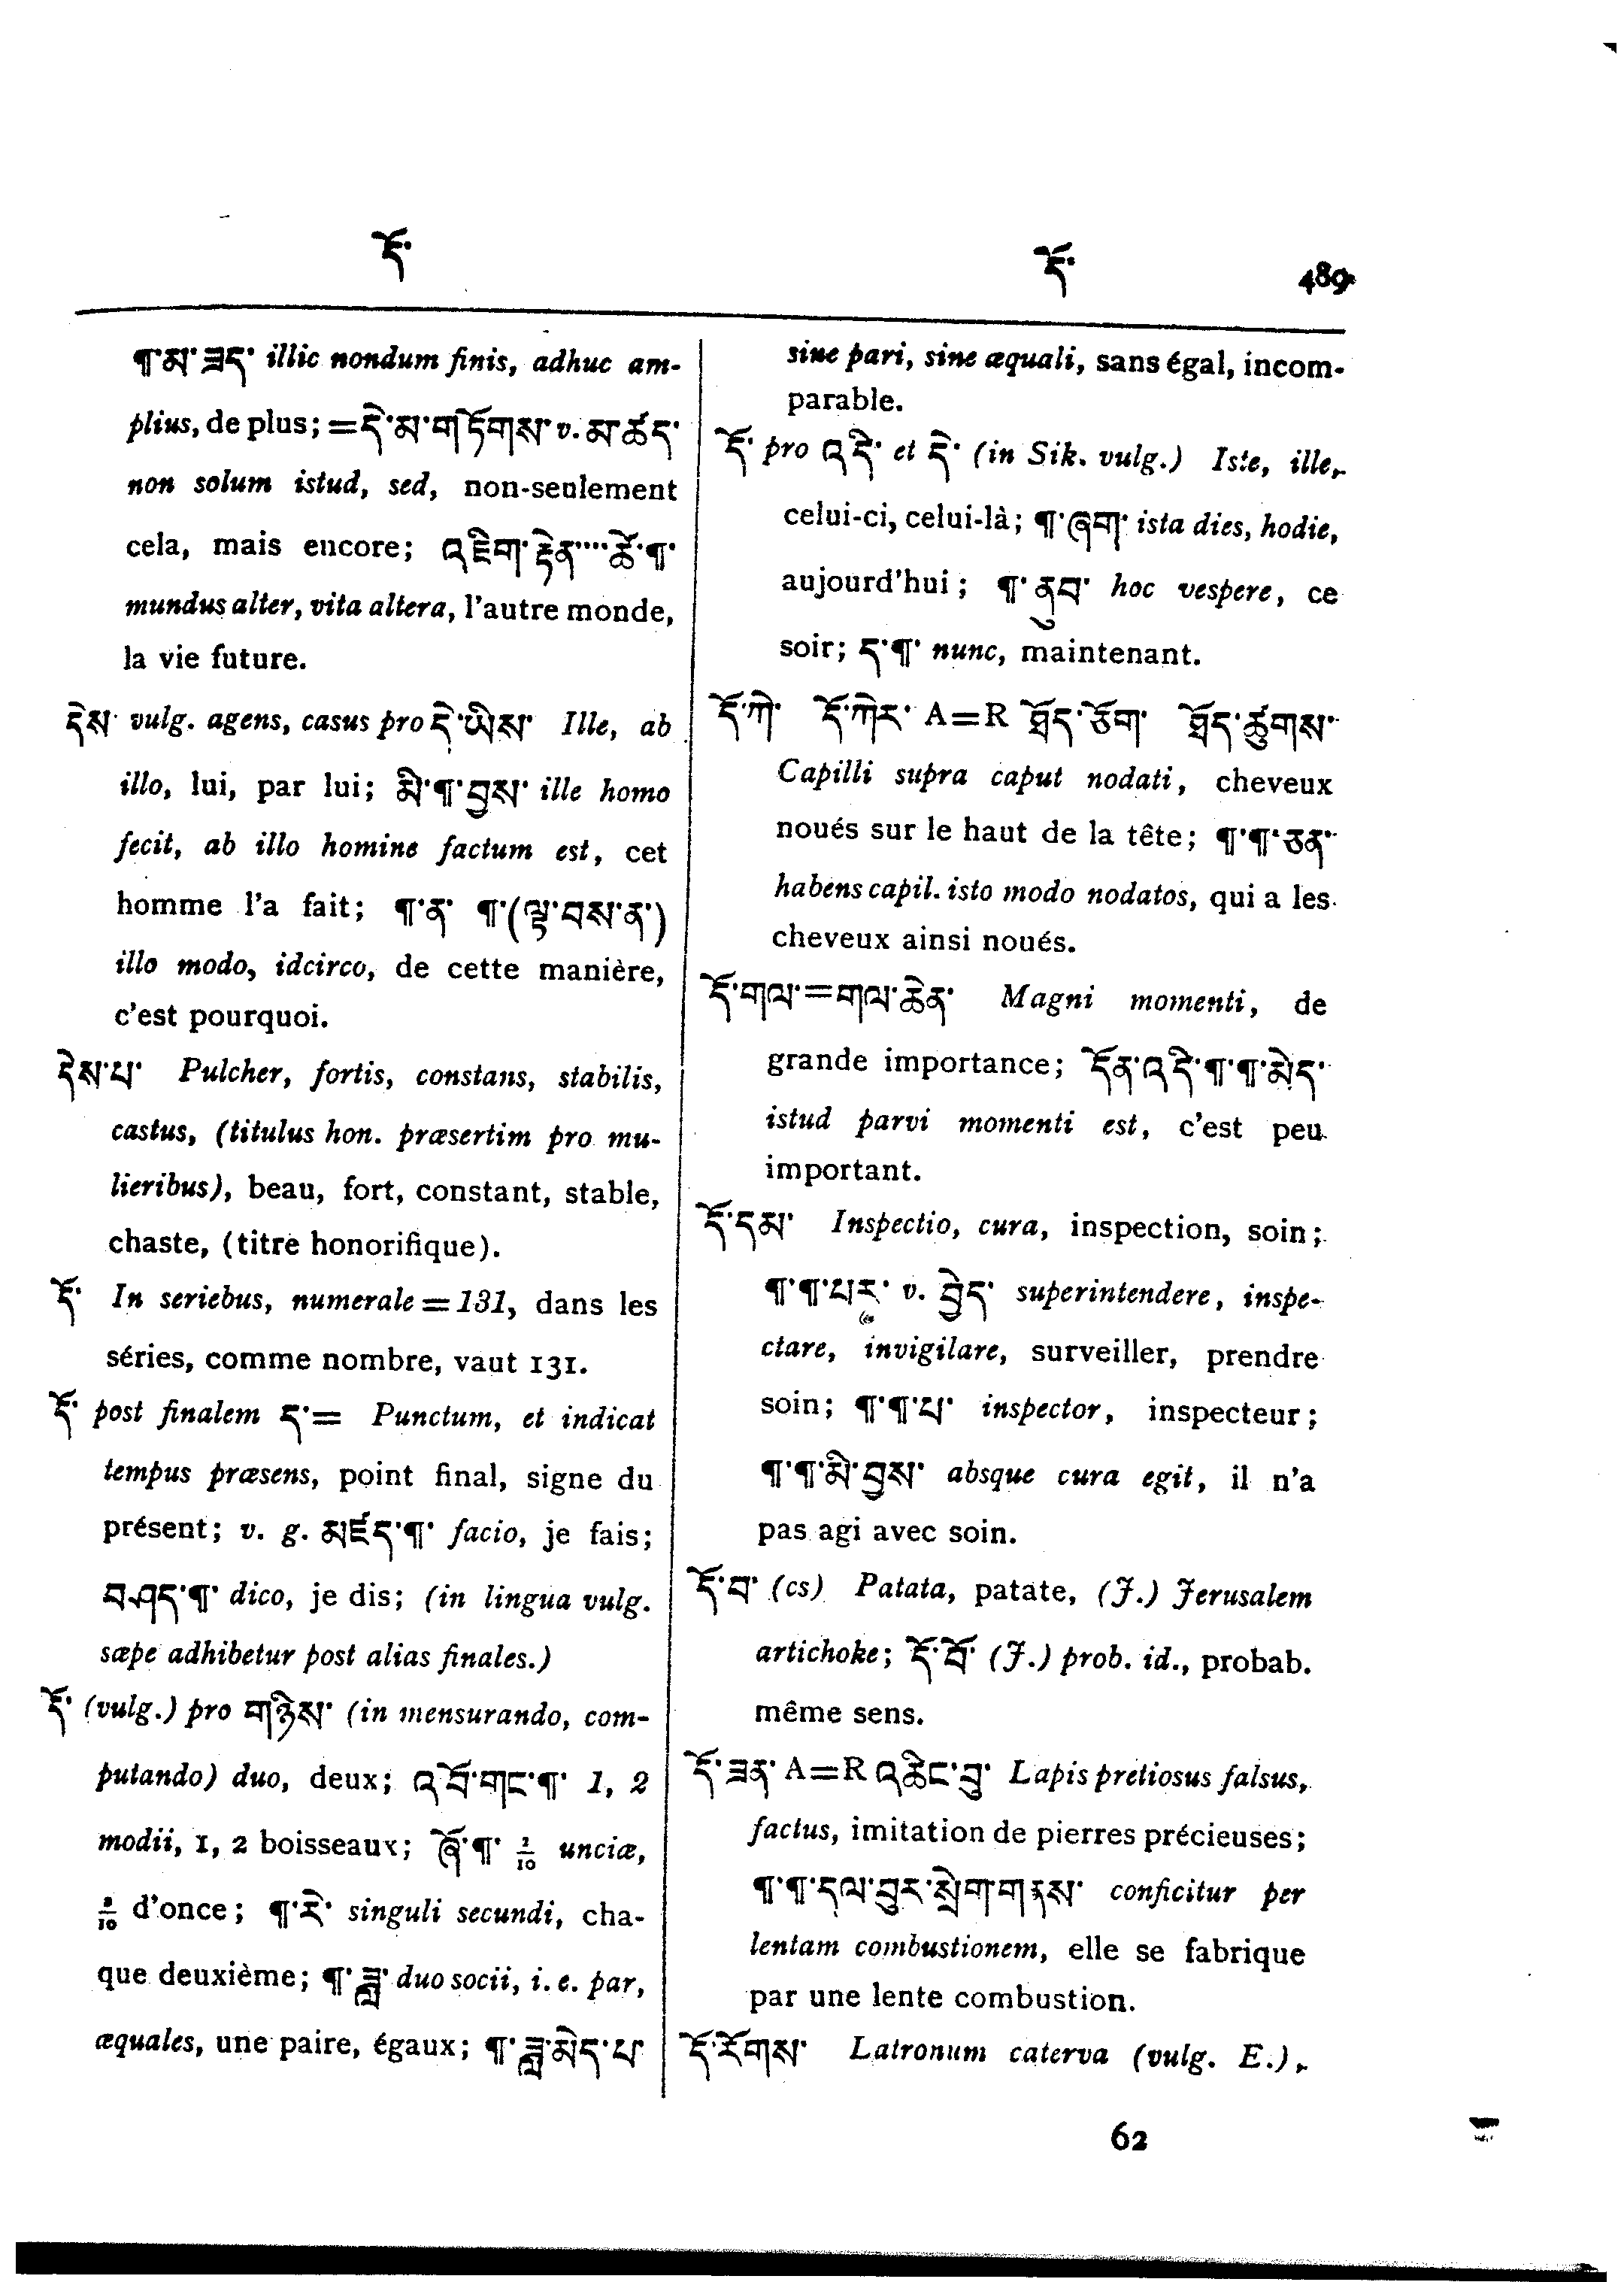 དོ་ དོ་ 489
¶་མ་ཟད་ illic nondum finis, adhuc am-
plius, de plus; = དེ་མ་གཏོགས་ v. མ་ཚད་
non solum istud, sed, non-seulement
cela, mais encore; འཇིག་རྟེན་····ཚེ་¶་
mundus alter, vita altera, l'autre monde,
la vie future.
དེས་ vulg. agens, casus pro དེ་ཡིས་ Ille, ab
illo, lui, par lui; མི་¶་བྱས་ ille homo
fecit, ab illo homine factum est, cet
homme l'a fait; ¶་ན་ ¶་(ལྟ་བས་ན་)
illo modo, idcirco, de cette manière,
c'est pourquoi.
དེས་པ་ Pulcher, fortis, constans, stabilis,
castus, (titulus hon. præsertim pro mu-
lieribus), beau, fort, constant, stable,
chaste, (titre honorifique).
དོ་ In seriebus, numerale = 131, dans les
séries, comme nombre, vaut 131.
དོ་ post finalem ད་ = Punctum, et indicat
tempus præsens, point final, signe du
présent; v. g. མཛད་¶་ facio, je fais;
བཤད་¶་ dico, je dis; (in lingua vulg.
sæpe adhibetur post alias finales.)
དོ་ (vulg.) pro གཉིས་ (in mensurando, com-
putando) duo, deux; འབོ་གང་¶་ 1, 2
modii, 1, 2 boisseaux; ཞོ་¶་ 2/10 unciæ,
2/10 d'once; ¶་རེ་ singuli secundi, cha-
que deuxième; ¶་ཟླ་ duo socii, i. e. par,
æquales, une paire, égaux; ¶་ཟླ་མེད་པ་
sine pari, sine æquali, sans égal, incom-
parable.
དོ་ pro འདི་ et དེ་ (in Sik. vulg.) Iste, ille,
celui-ci, celui-là; ¶་ཞག་ ista dies, hodie,
aujourd'hui; ¶་ནུབ་ hoc vespere, ce
soir; ད་¶་ nunc, maintenant.
དོ་ཀེ་ དོ་ཀེར་ A=R ཐོད་ཅོག་ ཐོད་ཚུགས་
Capilli supra caput nodati, cheveux
noués sur le haut de la tête; ¶་¶་ཅན་
habens capil. isto modo nodatos, qui a les
cheveux ainsi noués.
དོ་གལ་=གལ་ཆེན་ Magni momenti, de
grande importance; དོན་འདི་¶་¶་མེད་
istud parvi momenti est, c'est peu
important.
དོ་དམ་ Inspectio, cura, inspection, soin;
¶་¶་པར་ v. བྱེད་ superintendere, inspe-
ctare, invigilare, surveiller, prendre
soin; ¶་¶་པ་ inspector, inspecteur;
¶་¶་མི་བྱས་ absque cura egit, il n'a
pas agi avec soin.
དོ་བ་ (cs) Patata, patate, (J.) Jerusalem
artichoke; དོ་བོ་ (J.) prob. id., probab.
même sens.
དོ་ཟན་ A=R འཆིང་བུ་ Lapis pretiosus falsus,
factus, imitation de pierres précieuses;
¶་¶་དལ་བུར་སྲེག་གནས་ conficitur per
lentam combustionem, elle se fabrique
par une lente combustion.
དོ་རོགས་ Latronum caterva (vulg. E.),
62